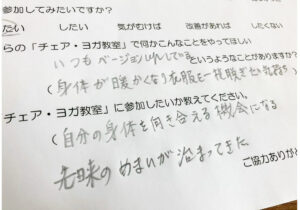 参加してみたいですか？
たい　したい　気がむけば　改善があれば　したくない
らの「チェア・ヨガ教室」で何かこんなことをやってほしい
いつもバージョンUPしている　というようなことがありますか？
（身体が暖かくなり衣服を一枚脱ぎ
チェア・ヨガ教室」に参加したいか教えてください。
（自分の身体を向き合える機会になる
のめまいが治まってきた
ご協力ありが